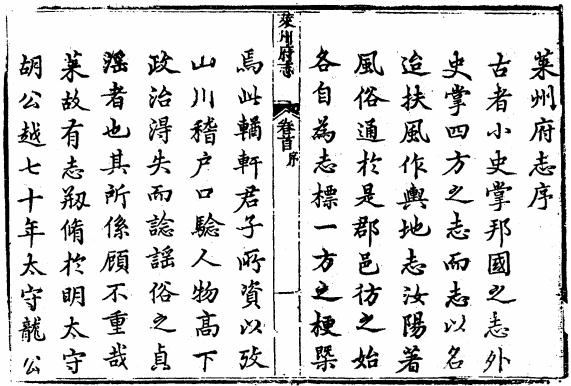 萊州府志序
古者小史掌邦國之志外
史掌四方之志而志以名
迨扶風作輿地志汝陽著
風俗通於是郡邑彷之始
各自為志標一方之梗槩
萊州府志
卷首
序
焉此輶軒君子所資以攷
山川稽户口驗人物高下
政治淂失而諗謡俗之貞
滛者也其所係顧不重哉
萊故有志刱脩於明太守
胡公越七十年太守龍公